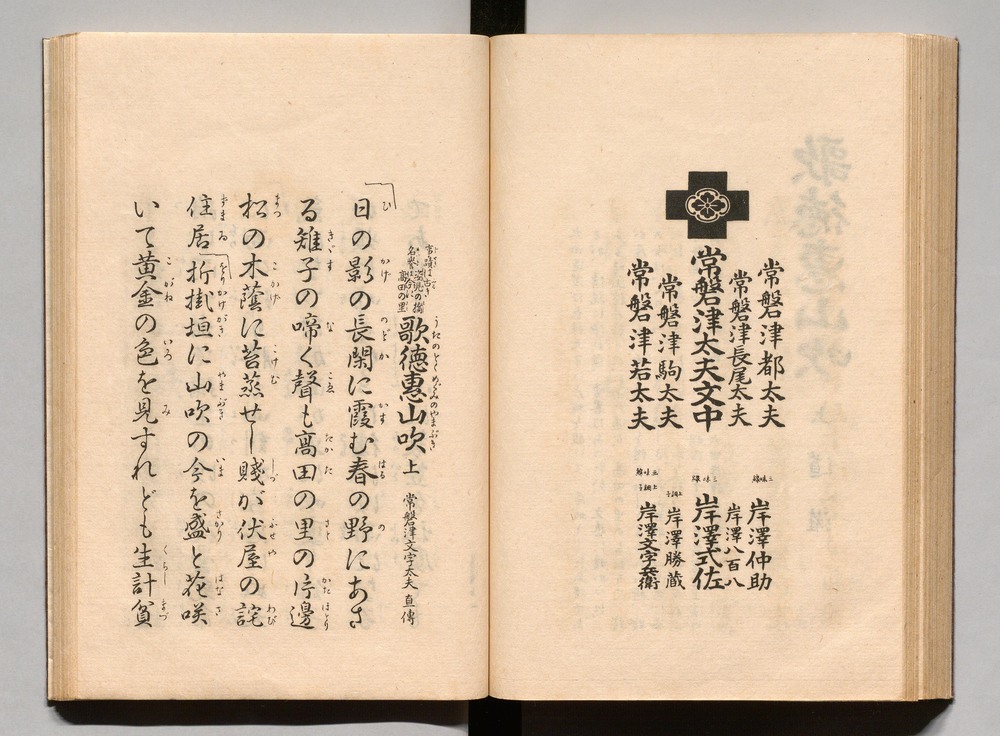 常磐津都太夫
常磐津長尾太夫
常磐津太夫文中
常磐津駒太夫
常磐津若太夫
三味線 岸澤仲助
岸澤八百八
三味線 岸澤式佐
上調子 岸澤勝蔵
三味線 上調子 岸澤文字兵衛
歌徳恵山吹 上 常磐津文字太夫 直傳
日の影の長閑に霞む春の野にあさ
る雉子の啼く聲も高田の里の片邊
松の木蔭に苔蒸せし賤が伏屋の詫
住居折掛垣に山吹の今を盛と花咲
いて黄金の色を見すれども生計貧